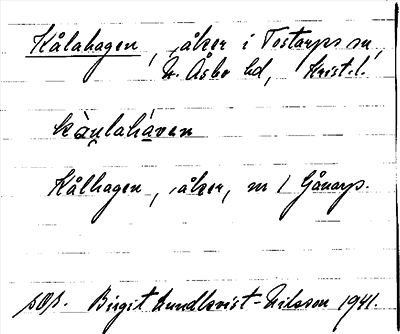 Kålahagen, åker i Tostarps sn
N. Åsbo hd, Krist.l.
kàu̯lahá̠ven
Kålhagen, åker, nr 1 Gånarp.
uppt. Birgit Lundkvist-Nilsson 1941.